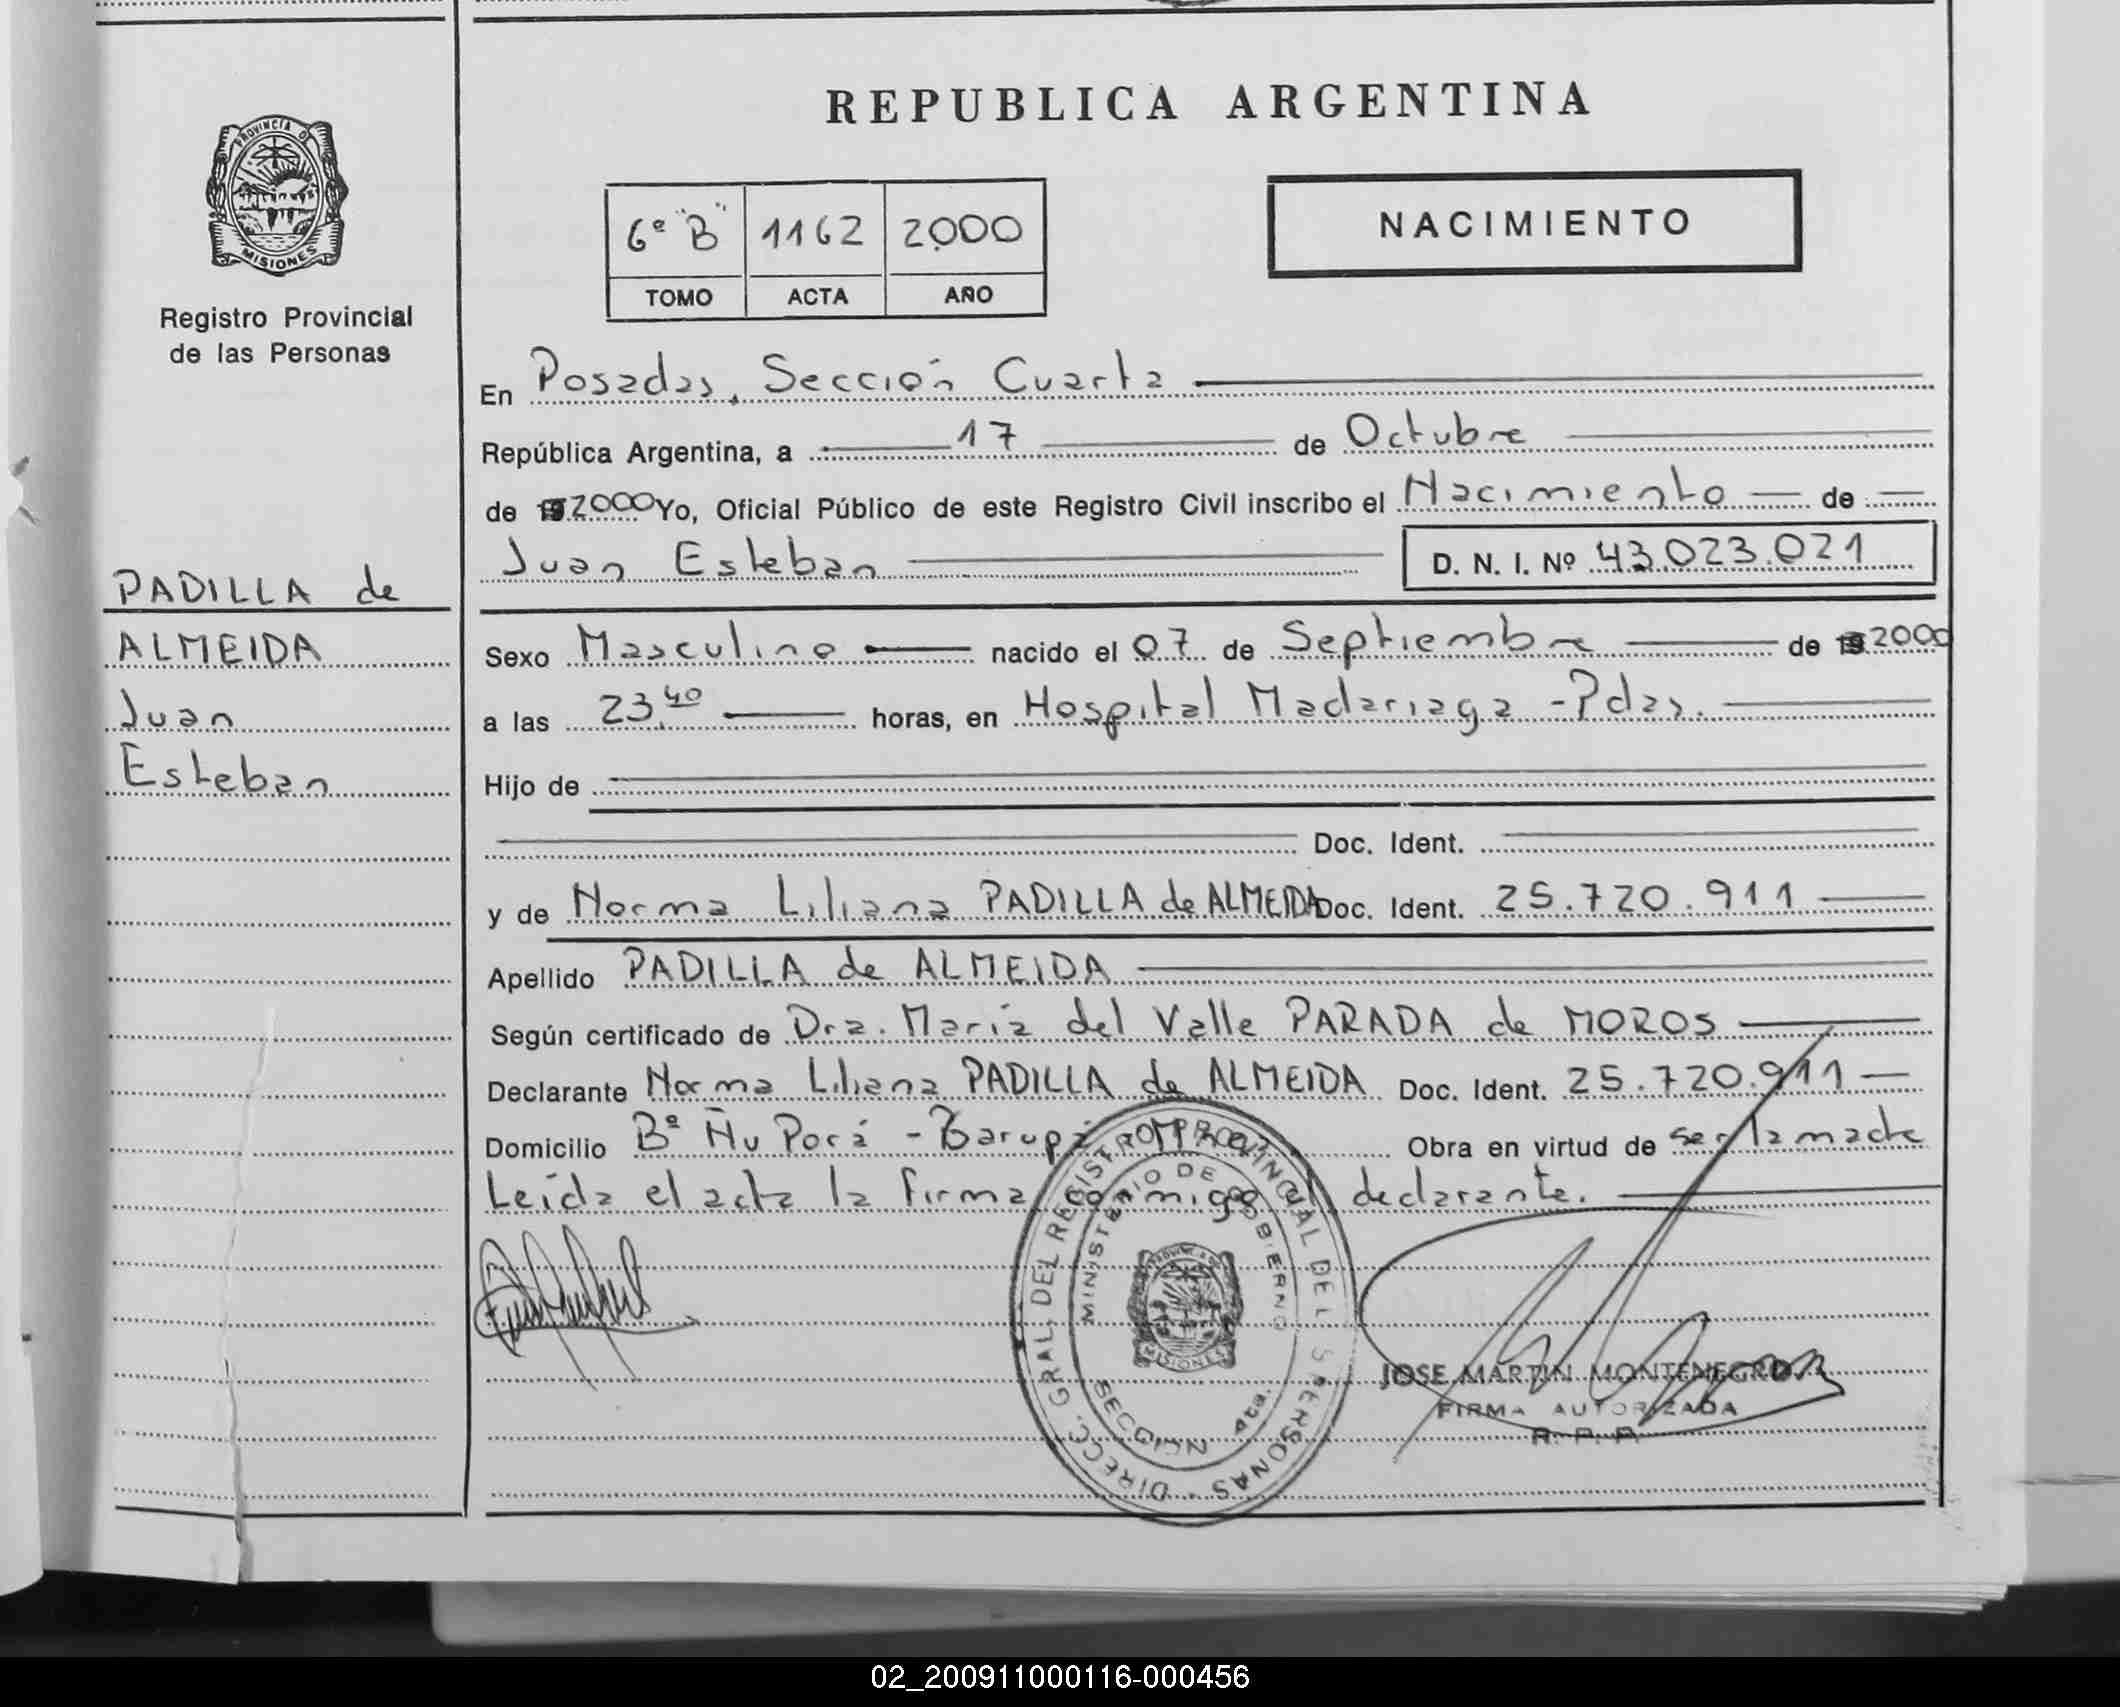 REPUBLICA ARGENTINA
PROVINCIA DE
MISIONES
Registro Provincial
de las Personas
6º "B" 1162 2000
TOMO ACTA AÑO
NACIMIENTO
En Posadas, Sección Cuarta
República Argentina, a 17 de Octubre
de 2000 Yo, Oficial Público de este Registro Civil inscribo el Nacimiento de
Juan Esteban D. N. I. Nº 43.023.021
PADILLA de
ALMEIDA
Juan
Esteban
Sexo Masculino nacido el 07 de Septiembre de 2000
a las 23.40 horas, en Hospital Madariaga - Pdas.
Hijo de
Doc. Ident.
y de Norma Liliana PADILLA de ALMEIDA Doc. Ident. 25.720.911
Apellido PADILLA de ALMEIDA
Según certificado de Dra. María del Valle PARADA de MOROS
Declarante Norma Liliana PADILLA de ALMEIDA Doc. Ident. 25.720.911
Domicilio Bº Ñu Porá - Garupá Obra en virtud de ser la madre
Leída el acta la firma conmigo el declarante.
DIRECC. GRAL. DEL REGISTRO PROVINCIAL DE LAS PERSONAS
MINISTERIO DE GOBIERNO
SECCION 4ta.
MISIONES
JOSE MARTIN MONTENEGRO
FIRMA AUTORIZADA
R. P. P.
02_200911000116-000456